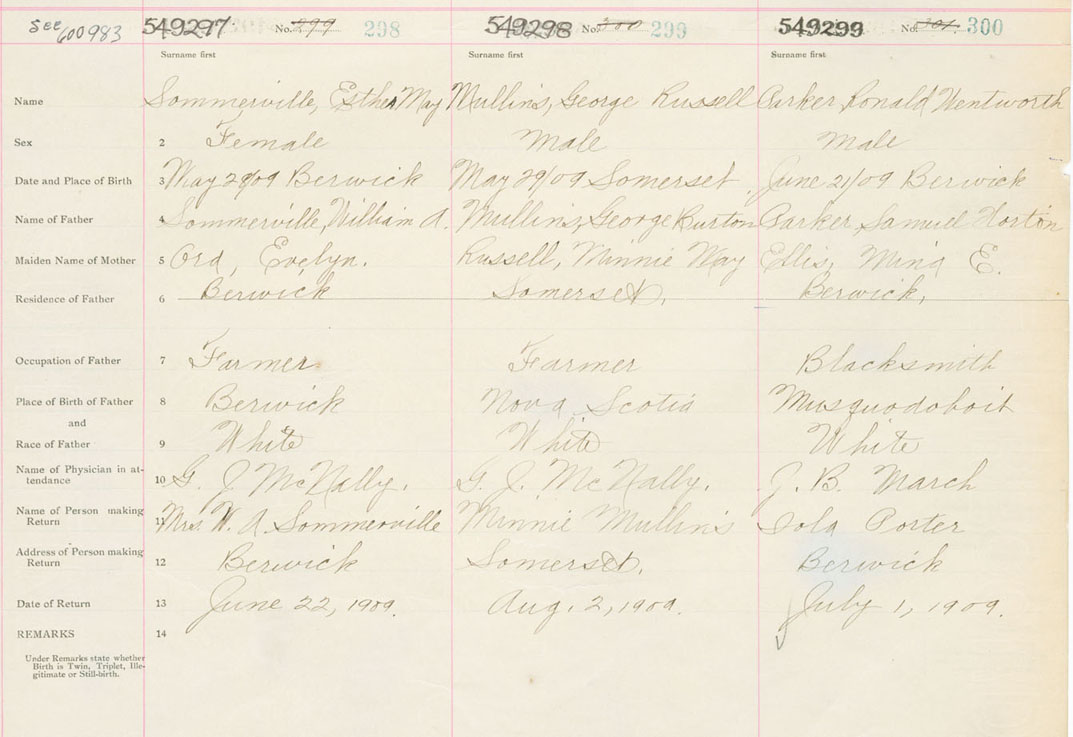 SEE 600983 549297 No. 299 298 549298 No. 300 299 549299 No. 301 300
Surname first Surname first Surname first
Name Sommerville, Esther May Mullins, George Russell Parker Ronald Wentworth
Sex 2 Female Male Male
Date and Place of Birth 3 May 29/09 Berwick May 29/09 Somerset. June 21/09 Berwick
Name of Father 4 Sommerville, William A. Mullins, George Burton Parker, Samuel Horton
Maiden Name of Mother 5 Ord, Evelyn. Russell, Minnie May Ellis, Mina E.
Residence of Father 6 Berwick Somerset. Berwick,
Occupation of Father 7 Farmer Farmer Blacksmith
Place of Birth of Father 8 Berwick Nova Scotia Musquodoboit
and
Race of Father 9 White White White
Name of Physician in at-
tendance 10 G. J McNally. G. J. McNally. J. B. March
Name of Person making
Return 11 Mrs. W. A. Sommerville Minnie Mullins Iola Porter
Address of Person making
Return 12 Berwick Somerset. Berwick
Date of Return 13 June 22, 1909. Aug. 2, 1909. July 1, 1909.
REMARKS 14
Under Remarks state whether
Birth is Twin, Triplet, Ille-
gitimate or Still-birth.